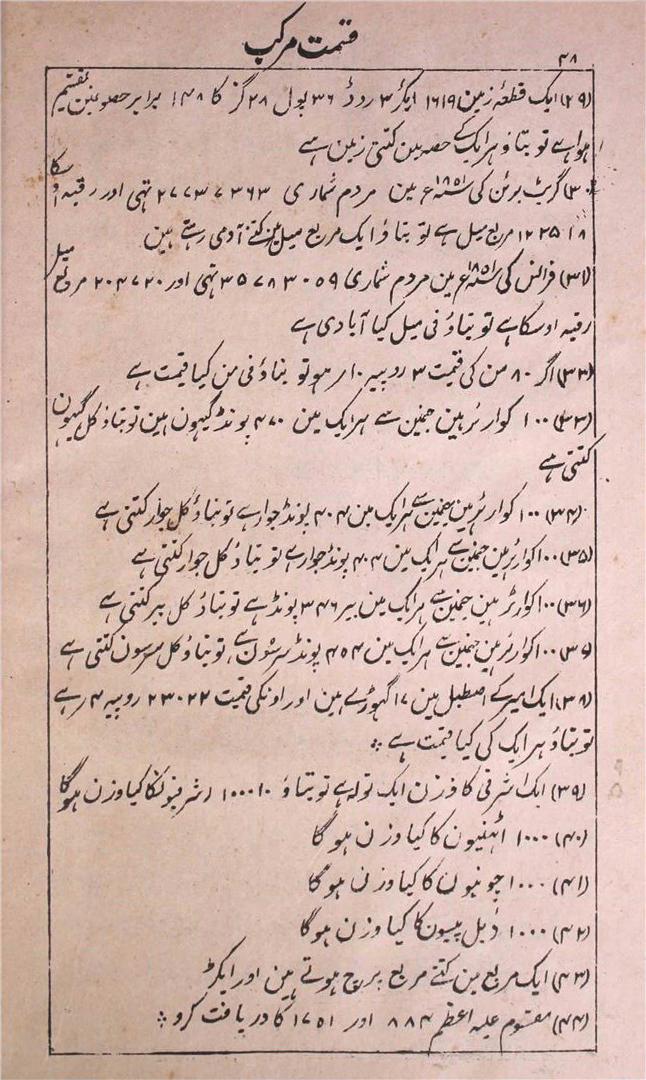 ۴۸
قسمت مرکب
(۲۹) ایک قطعۂ زمین ۱۶۱۹ ایکڑ ۳ روڈ ۳۶ پول ۲۸ گز کا ۱۴۸ برابر حصو نمین تقسیم
ہوا ہے تو بتاؤ ہر ایک کے حصہ مین کتنی زمین ہے
(۳۰) گریٹ برٹن کی ۱۸۵۱ء مین مردم شماری ۲۷۷۳۷۳۶۳ تہی اور رقبہ اوسکا
۱۲۲۵۱۸ مربع میل ہے تو بتاؤ ایک مربع میل مین کتنے آدمی رہتے ہین
(۳۱) فرانس کی ۱۸۵۱ء مین مردم شماری ۳۵۷۸۳۰۵۹ تہی اور ۲۰۴۷۲۰ مربع میل
رقبہ اوسکا ہے تو بتاؤ فی میل کیا آبادی ہے
(۳۲) اگر ۸۰ من کی قیمت ۳ روپیہ ۱۰ر ہو تو بتاؤ فی من کیا قیمت ہے
(۳۳) ۱۰۰ کوارٹر ہین جنمین سے ہر ایک مین ۴۷۰ پونڈ گیہون ہین تو بتاؤ کل گیہون
کتنی ہے
(۳۴) ۱۰۰ کوارٹر ہین جنمین سے ہر ایک مین ۴۰۴ پونڈ جوار ہے تو بتاؤ کل جوار کتنی ہے
(۳۵) ۱۰۰ کوارٹر ہین جنمین سے ہر ایک مین ۴۰۴ پونڈ جوار ہے تو بتاؤ کل جوار کتنی ہے
(۳۶) ۱۰۰ کوارٹر ہین جنمین سے ہر ایک مین بیر ۳۴۶ پونڈ ہے تو بتاؤ کل بیر کتنی ہے
(۳۷) ۱۰۰ کوارٹر ہین جنمین سے ہر ایک مین ۴۵۴ پونڈ سرسون ہے تو بتاؤ کل سرسون کتنی ہے
(۳۸) ایک امیر کے اصطبل مین ۱۷ گہوڑے ہین اور اونکی قیمت ۲۳۰۲۲ روپیہ ۴ر ہے
تو بتاؤ ہر ایک کی کیا قیمت ہے
(۳۹) ایک اشرفی کا وزن ایک تولہ ہے تو بتاؤ ۱۰۰۰۱۰ اشرفیونکا کیا وزن ہوگا
(۴۰) ۱۰۰۰ اٹہنیون کا کیا وزن ہوگا
(۴۱) ۱۰۰۰ چونیون کا کیا وزن ہوگا
(۴۲) ۱۰۰۰ ڈبل پیسون کا کیا وزن ہوگا
(۴۳) ایک مربع مین کتنے مربع برچ ہوتے ہین اور ایکڑ
(۴۴) مقسوم علیہ اعظم ۸۸۴ اور ۱۷۵۱ کا دریافت کرو